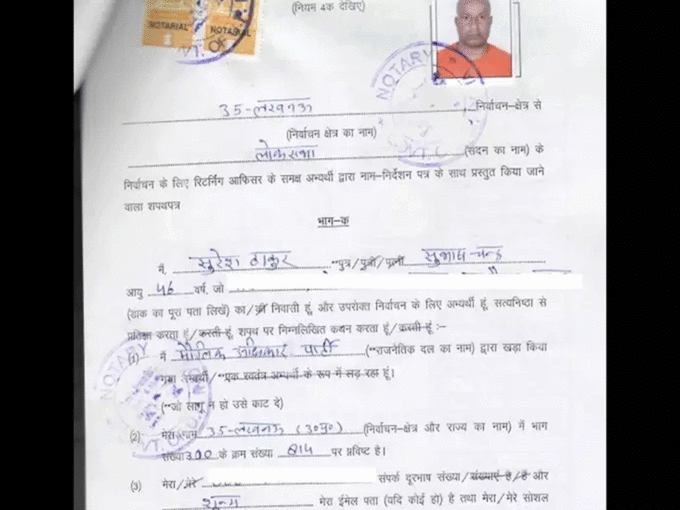 NOTARIAL NOTARIAL
(नियम 4क देखिए)
NOTARY
35-लखनऊ निर्वाचन-क्षेत्र से
(निर्वाचन क्षेत्र का नाम)
लोकसभा (सदन का नाम) के
निर्वाचन के लिए रिटर्निंग आफिसर के समक्ष अभ्यर्थी द्वारा नाम-निर्देशन पत्र के साथ प्रस्तुत किया जाने
वाला शपथपत्र
भाग-क
मैं, सुरेश ठाकुर **पुत्र/पुत्री/पत्नी सुभाष चन्द्र
आयु 46 वर्ष, जो
(डाक का पूरा पता लिखें) का/की निवासी हूं, और उपरोक्त निर्वाचन के लिए अभ्यर्थी हूं, सत्यनिष्ठा से
प्रतिज्ञा करता हूं/करती हूं, शपथ पर निम्नलिखित कथन करता हूं/करती हूं :-
(1) मैं मौलिक अधिकार पार्टी (**राजनैतिक दल का नाम) द्वारा खड़ा किया
गया अभ्यर्थी/**एक स्वतंत्र अभ्यर्थी के रूप में लड़ रहा हूं।
(**जो लागू न हो उसे काट दें)
NOTARY
(2) मेरा नाम 35-लखनऊ (उ०प्र०) (निर्वाचन-क्षेत्र और राज्य का नाम) में भाग
संख्या 300 के क्रम संख्या 814 पर प्रविष्ट है।
(3) मेरा/मेरे संपर्क दूरभाष संख्या/संख्याएं है/हैं और
शून्य मेरा ईमेल पता (यदि कोई हो) है तथा मेरा/मेरे सोशल